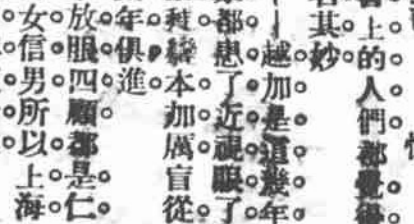 上的人們都覺
其妙
越加是這幾年
都患了近視眼了
本加厲盲從
年俱進
放眼四顧都是仁
女信男所以上海